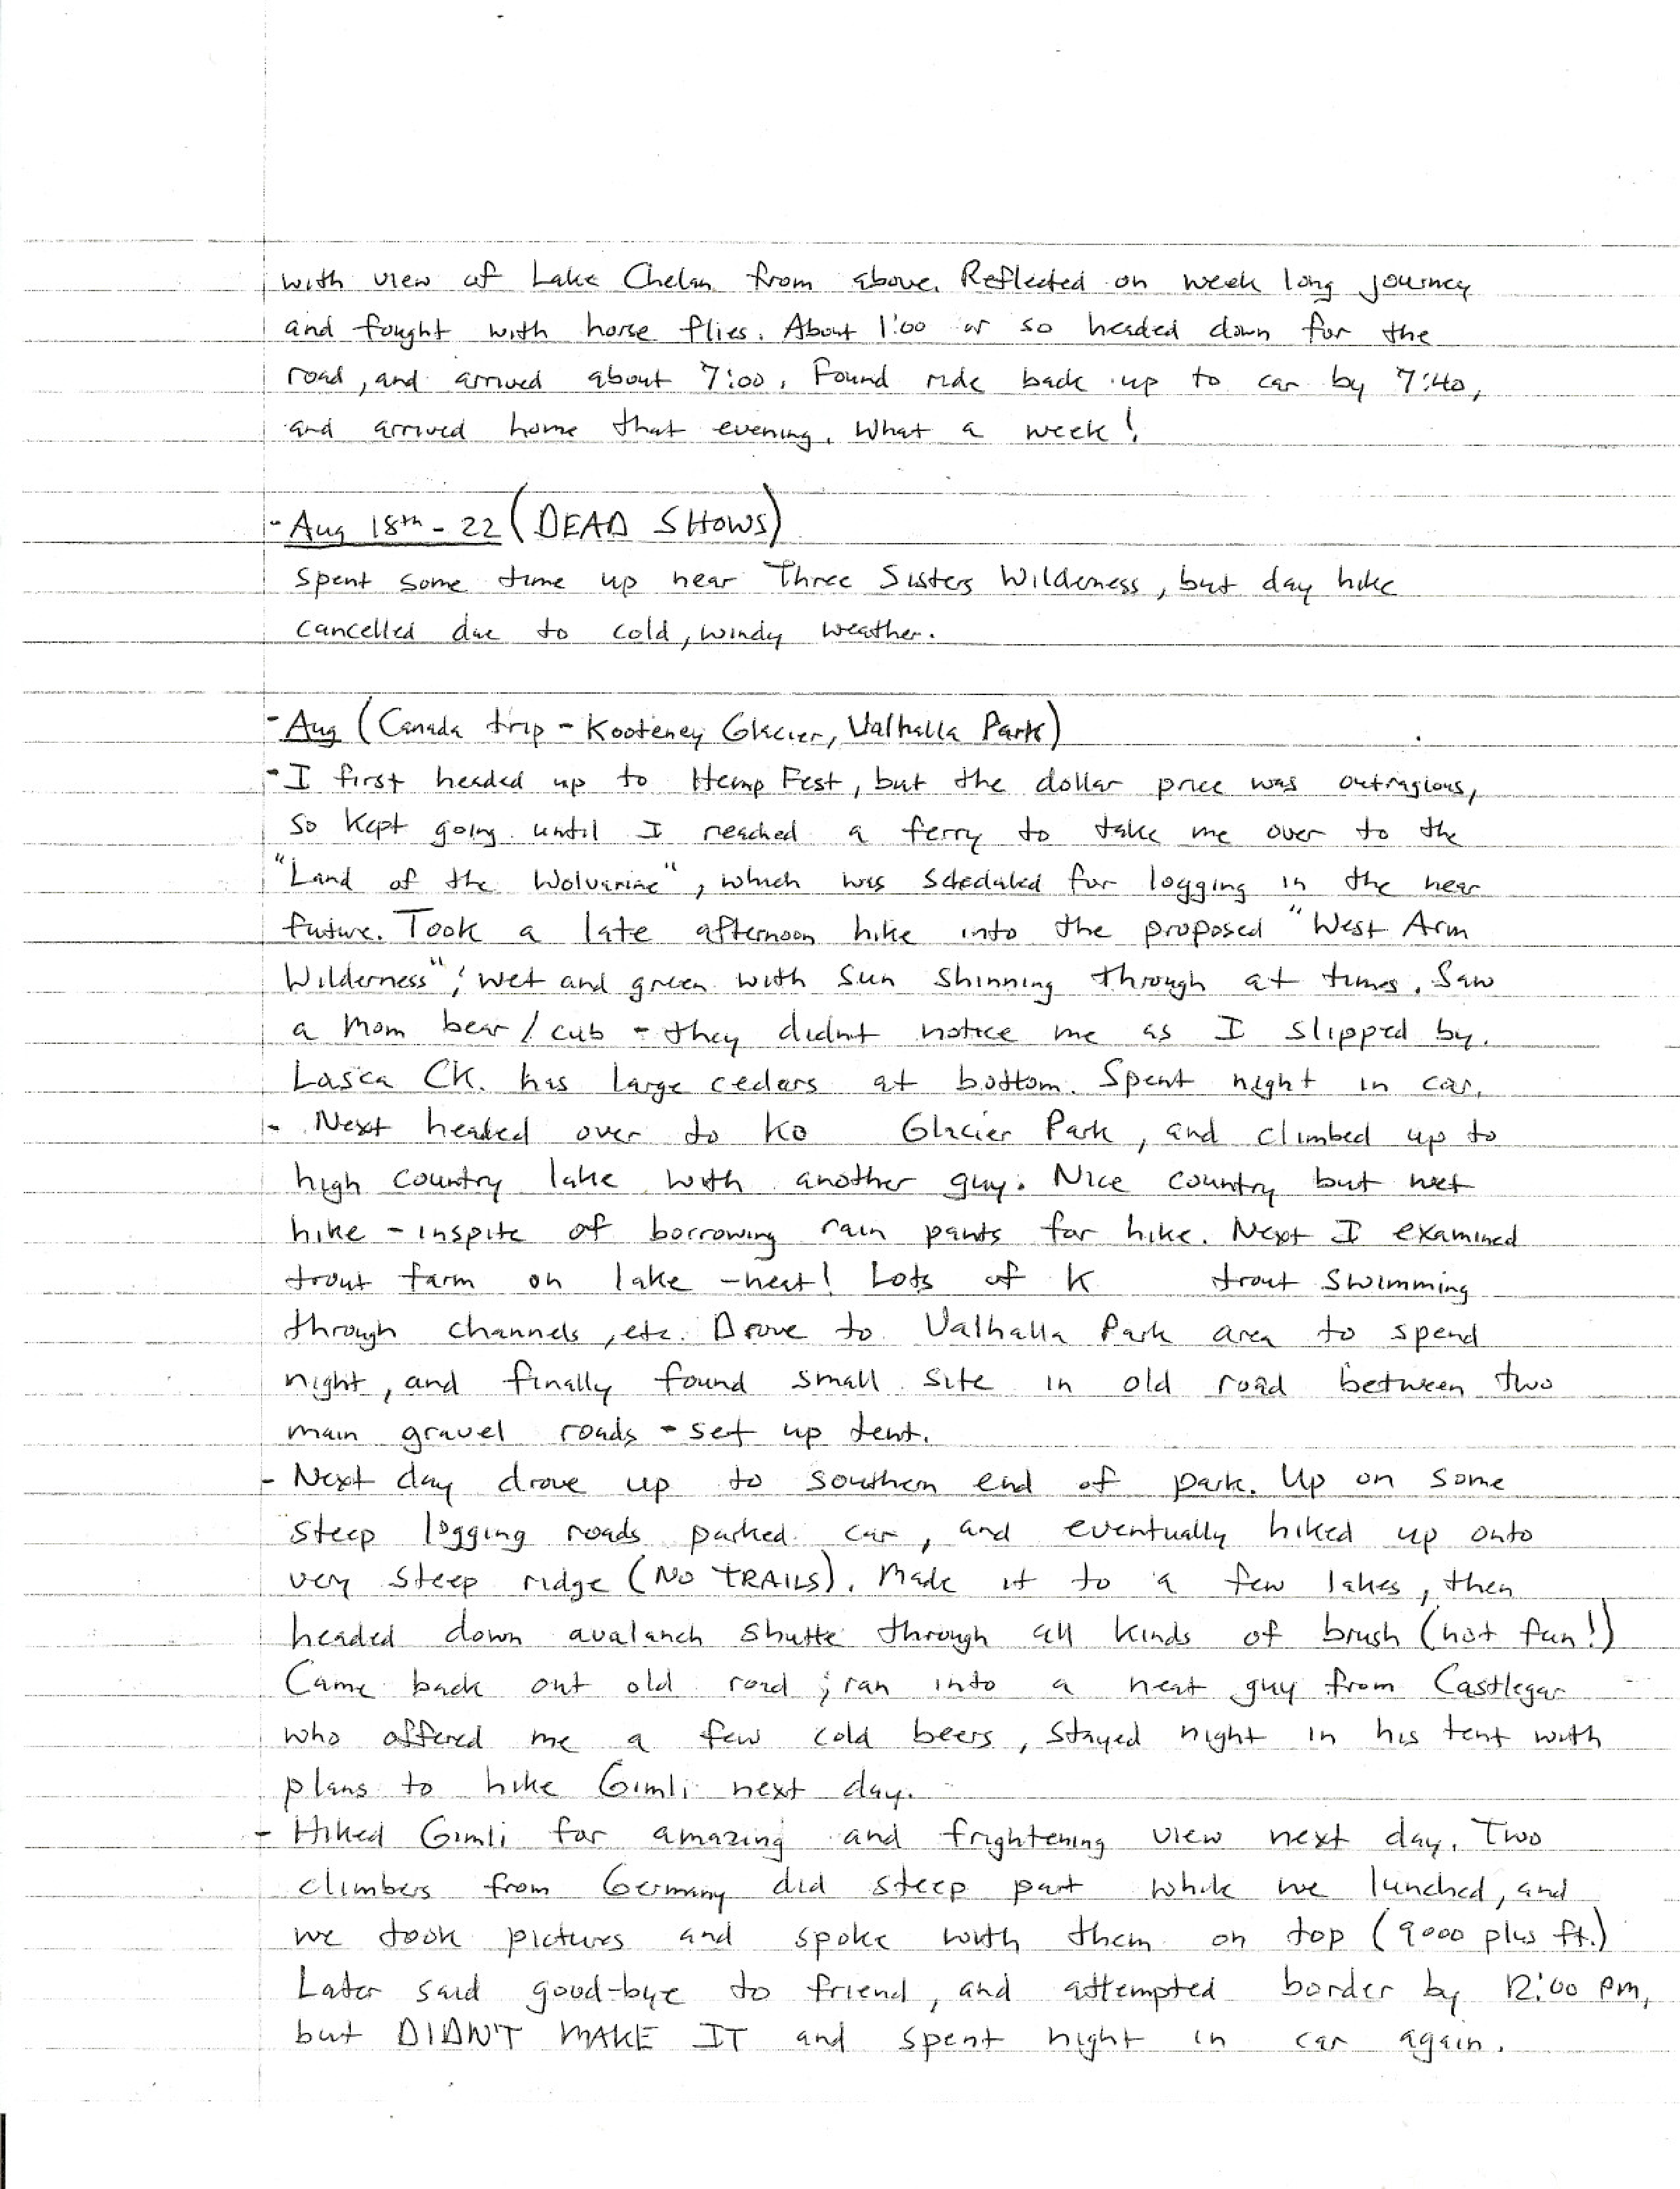 with view of Lake Chelan from above. Reflected on week long journey
and fought with horse flies. About 1:00 or so headed down for the
road, and arrived about 7:00. Found ride back up to car by 7:40,
and arrived home that evening. What a week!
- Aug 18th - 22 (DEAD SHOWS)
Spent some time up near Three Sisters Wilderness, but day hike
cancelled due to cold, windy weather.
- Aug (Canada trip - Kooteney Glacier, Valhalla Park)
- I first headed up to Hemp Fest, but the dollar price was outragious,
so kept going until I reached a ferry to take me over to the
"Land of the Wolverine", which was scheduled for logging in the near
future. Took a late afternoon hike into the proposed "West Arm
Wilderness"; wet and green with sun shinning through at times. Saw
a mom bear/cub - they didnt notice me as I slipped by.
Lasca CK. has large cedars at bottom. Spent night in car.
- Next headed over to Ko Glacier Park, and climbed up to
high country lake with another guy. Nice country but wet
hike - inspite of borrowing rain pants for hike. Next I examined
trout farm on lake - neat! Lots of K trout swimming
through channels, etc. Drove to Valhalla Park area to spend
night, and finally found small site in old road between two
main gravel roads - set up tent.
- Next day drove up to southern end of park. Up on some
steep logging roads parked car, and eventually hiked up onto
very steep ridge (NO TRAILS). Made it to a few lakes, then
headed down avalanch shutte through all kinds of brush (not fun!)
Came back out old road; ran into a neat guy from Castlegar
who offered me a few cold beers, stayed night in his tent with
plans to hike Gimli next day.
- Hiked Gimli for amazing and frightening view next day. Two
climbers from Germany did steep part while we lunched, and
we took pictures and spoke with them on top (9000 plus ft.)
Later said good-bye to friend, and attempted border by 12:00 pm,
but DIDN'T MAKE IT and spent night in car again.